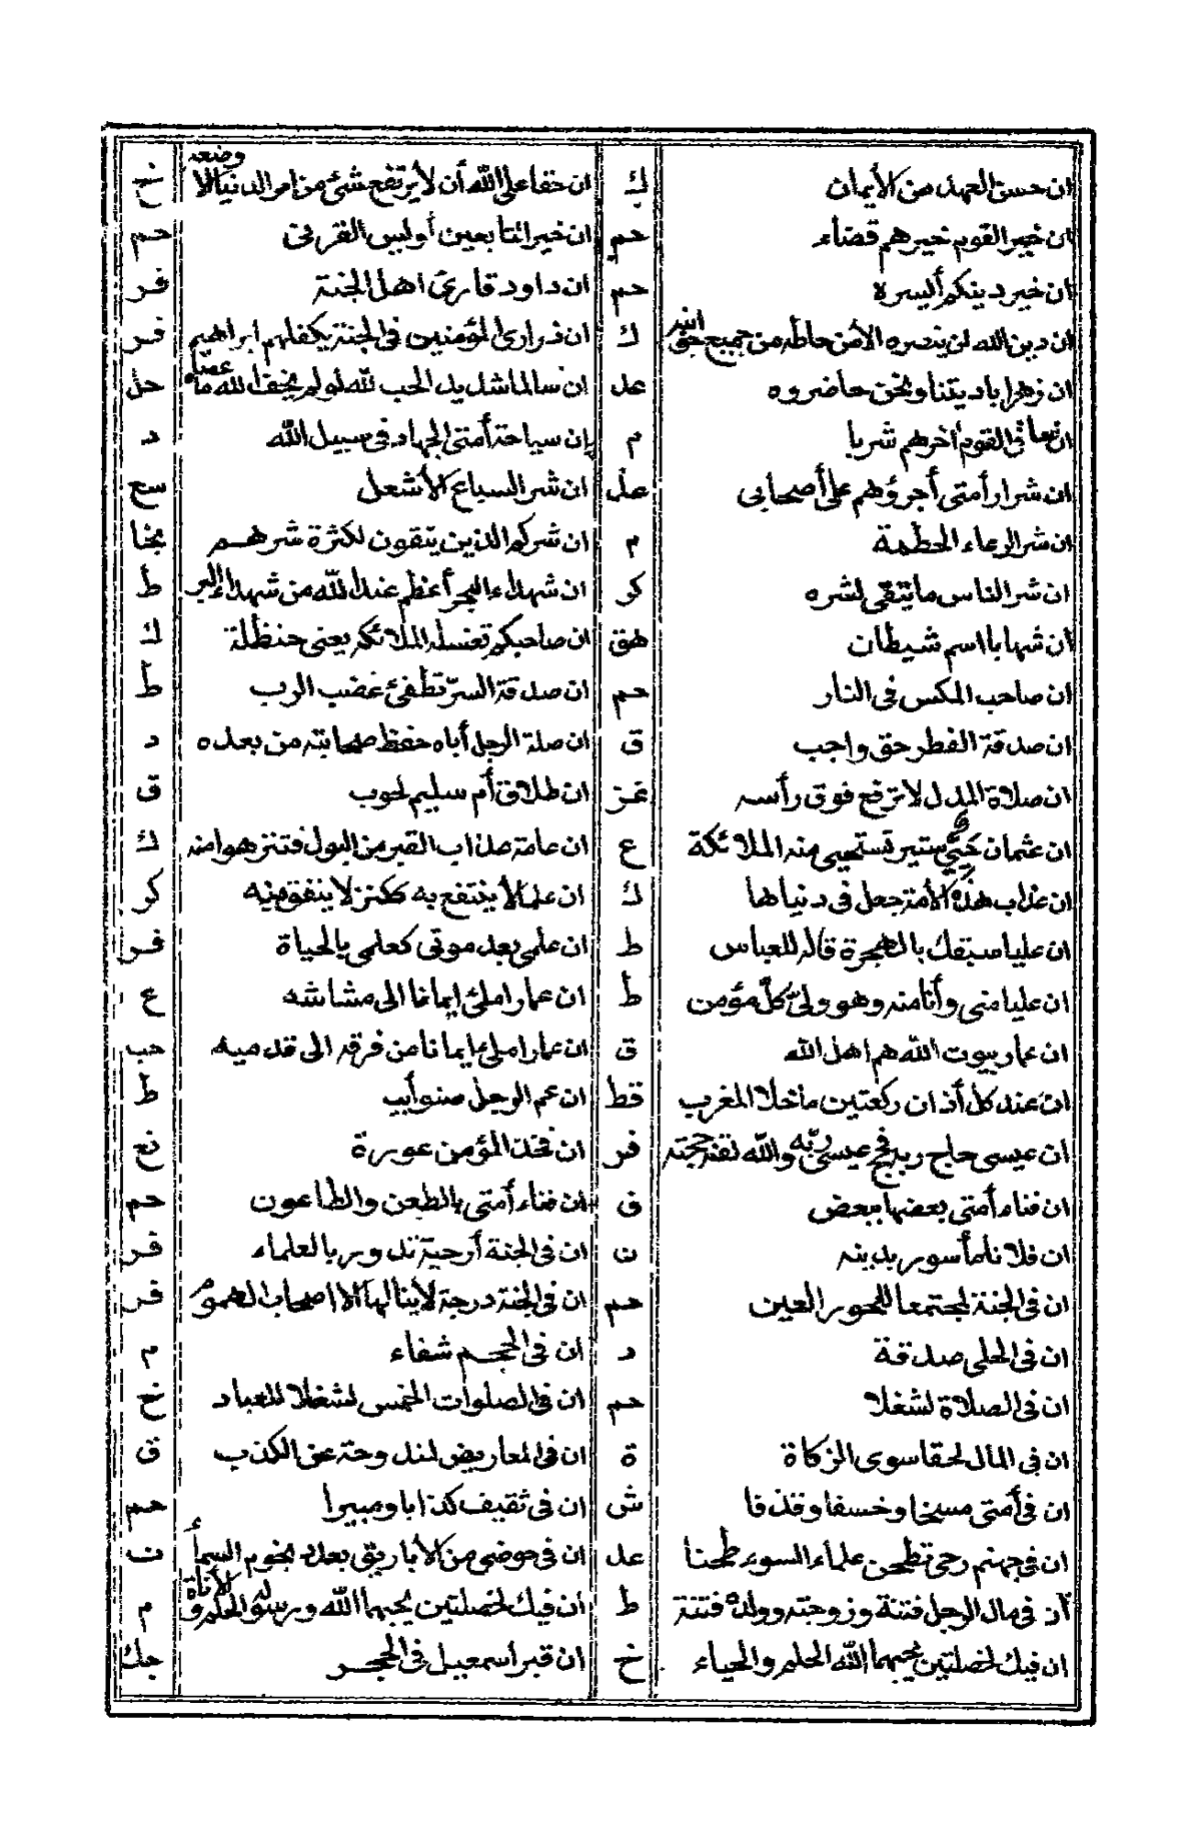 ان حسن العهد من الأيمان ك ان حقا على الله أن لا يرتفع شئ من امر الدنيا الا وضعه خ
ان خير القوم خيرهم قضاء حم ان خير التابعين أويس القرنى حم
ان خير دينكم أيسره حم ان داود قارئ اهل الجنة فر
ان دين الله لن ينصره الا من حاطه من جميع جوانبه ك ان ذرارى المؤمنين فى الجنة يكفلهم ابراهيم فر
ان زهرا باديتنا ونحن حاضروه عل ان سالما شديد الحب لله لو لم يخف الله ما عصاه حل
ان ساقى القوم أخرهم شربا م إن سياحة أمتى الجهاد فى سبيل الله د
ان شرار أمتى أجرؤهم على أصحابى عل ان شر السباع الأشعل سع
ان شر الرعاء الحطمة م ان شركم الذين يتقون لكثرة شرهم نجا
ان شر الناس ما يتقى لشره كر ان شهداء البحر أعظم عند الله من شهداء البر ط
ان شهابا اسم شيطان هق ان صاحبكم تغسله الملائكه يعنى حنظلة ك
ان صاحب المكس فى النار حم ان صدقة السر تطفئ غضب الرب ط
ان صدقة الفطر حق واجب ق ان صلة الرجل أباه حفظ صحابته من بعده د
ان صلاة المدل لا ترفع فوق رأسه ان طلاق أم سليم لحوب ق
ان عثمان حيى ستير تستحيى منه الملائكة ع ان عامة عذاب القبر من البول فتنزهوا منه ك
ان عذاب هذه الأمة جعل فى دنياها ك ان علما لا ينتفع به ككنز لا ينفق منه كر
ان عليا سبقك بالهجرة قاله للعباس ط ان علمى بعد موتى كعلمى بالحياة فر
ان عليا منى وأنا منه وهو ولىّ كلّ مؤمن ط ان عمارا ملئ إيمانا الى مشاشه ع
ان عمار بيوت الله هم اهل الله ق ان عمارا ملئ ايمانا من فرقه الى قدميه حب
ان عند كل أذان ركعتين ماخلا المغرب قط ان عم الرجل صنو أبيه ط
ان عيسى حاج ربه فحج عيسى ربّه والله لقنه حجته فر ان فخذ المؤمن عورة نع
ان فناء أمتى بعضها ببعض ق ان فناء أمتى بالطعن والطاعون حم
ان فلانا مأسور بدينه ن ان فى الجنة أرحية تدور بالعلماء فر
ان فى الجنة لمجتمعا للحور العين حم ان فى الجنة درجة لا ينالها الا اصحاب الهموم فر
ان فى الحلى صدقة د ان فى الحجم شفاء م
ان فى الصلاة لشغلا حم ان فى الصلوات الخمس لشغلا للعباد خ
ان فى المال لحقا سوى الزكاة ة ان فى المعاريض لمندوحة عن الكذب ق
ان فى أمتى مسخا وخسفا وقذفا ش ان فى ثقيف كذابا ومبيرا حم
ان فى جهنم رحى تطحن علماء السوء طحنا عل ان فى حوضى من الأباريق بعدد نجوم السماء ت
ان فى مال الرجل فتنة وزوجته وولده فتنة ط ان فيك لخصلتين يحبهما الله ورسوله الحلم والأناة م
ان فيك لخصلتين يحبهما الله الحلم والحياء خ ان قبر اسمعيل فى الحجر حك